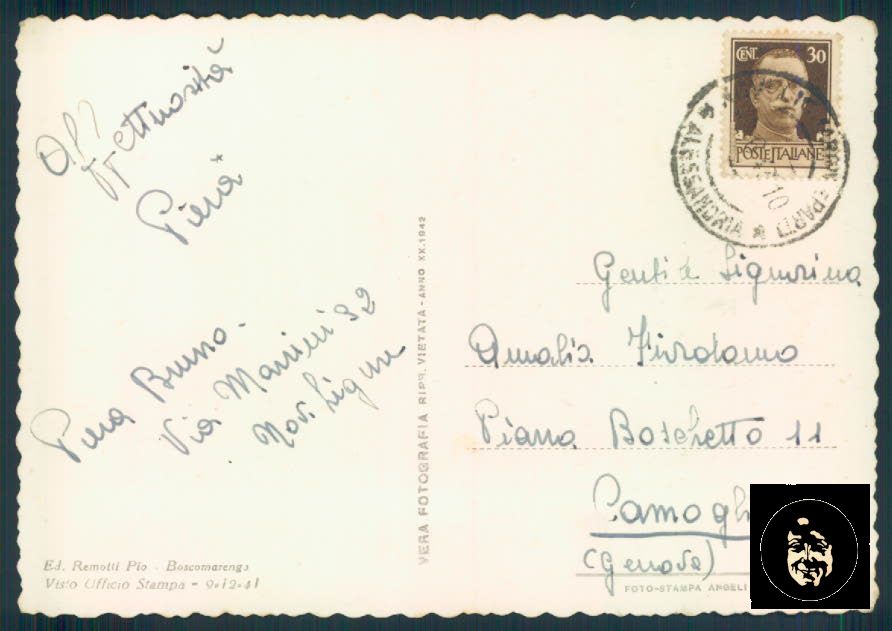 Affettuosità
Piera
Piera Bruno -
Via Mameli 32
Novi Ligure
Ed. Remotti Pio - Boscomarengo
Visto Ufficio Stampa - 9-12-41
VERA FOTOGRAFIA RIPR. VIETATA - ANNO XX.1942
CENT. 30
POSTE ITALIANE
ALESSANDRIA
Gentile Signorina
Amalia
Piazza Boschetto 11
Camogli
(Genova)
FOTO-STAMPA ANGELI